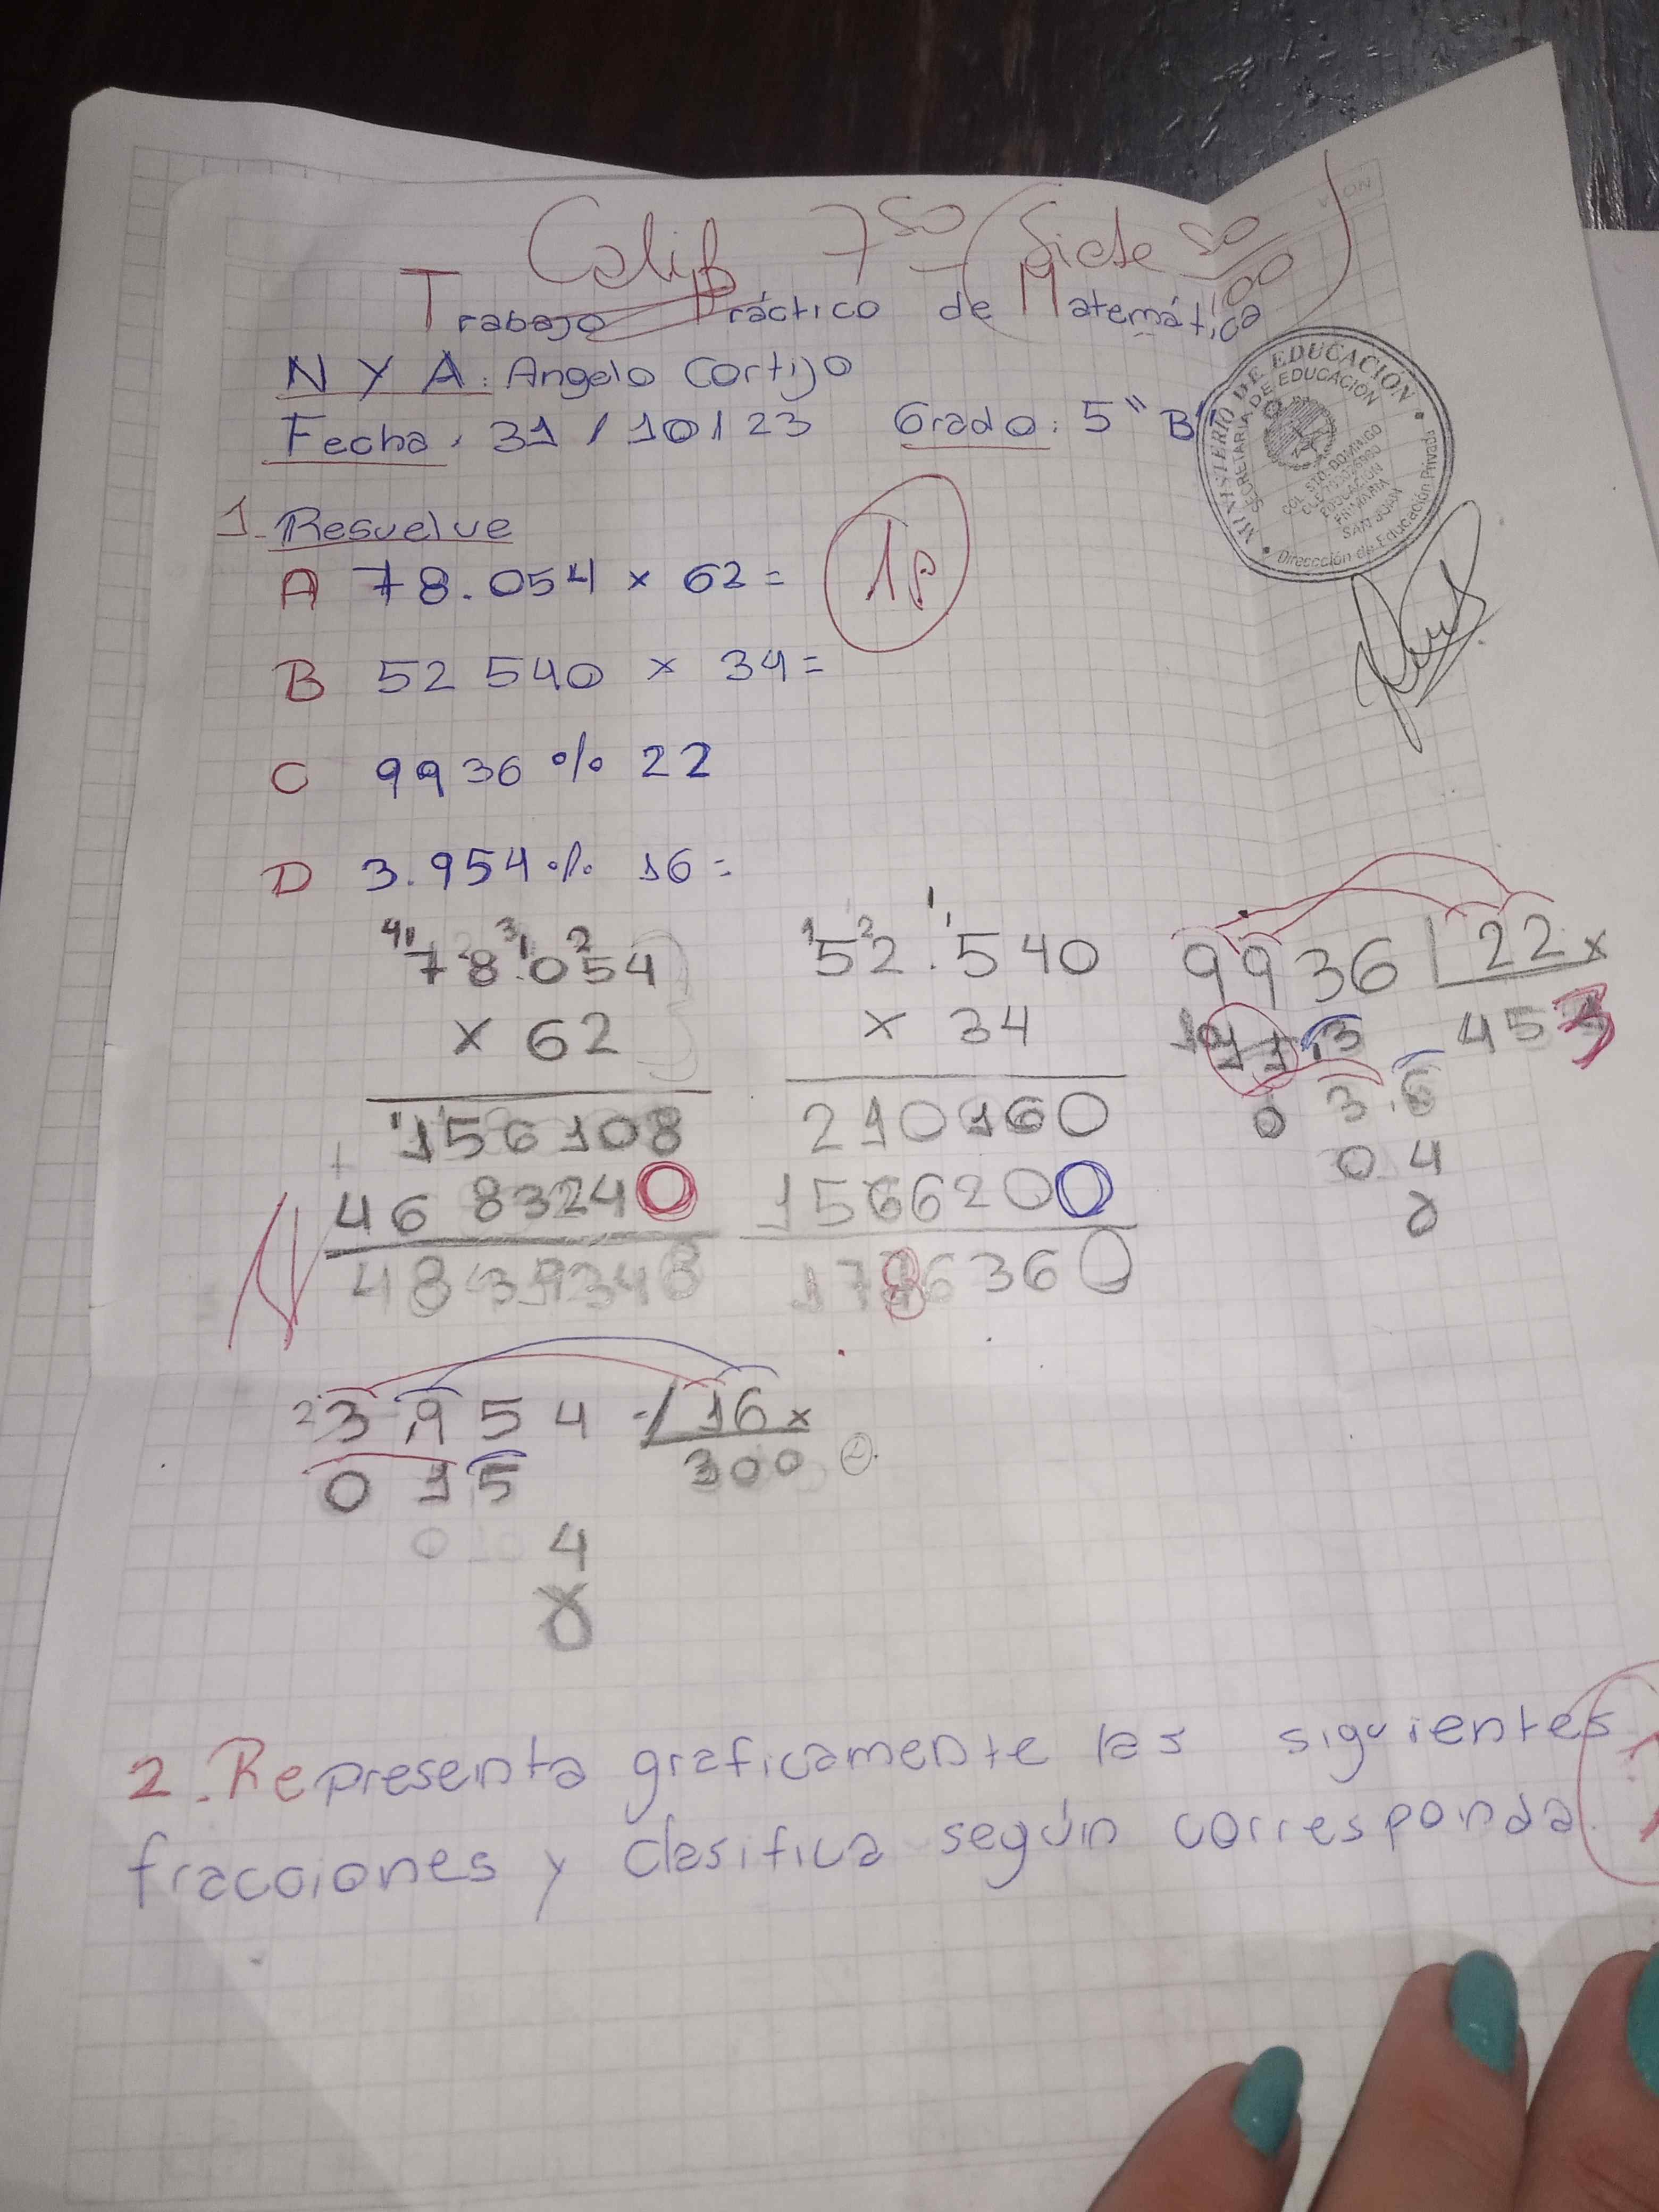 Calif 7 50 (Siete 50/100)
Trabajo Práctico de Matemática
N Y A: Angelo Cortijo
Fecha: 31/10/23 Grado: 5" B"
MINISTERIO DE EDUCACIÓN
SECRETARIA DE EDUCACIÓN
COL. STO. DOMINGO
EDUCACIÓN
PRIMARIA
SAN JUAN
Dirección de Educación Privada
1. Resuelve
A 78.054 x 62=
1p
B 52 540 x 34=
C 9936 % 22
D 3.954 % 16=
78.054
x 62
156108
+
4683240
4839348
52.540
x 34
210160
1566200
1786360
9936 22 x
453
3
0 3.6
0 4
3954 16 x
300
0 15
4
2. Representa graficamente las siguientes
fracciones y clasifica según corresponda.